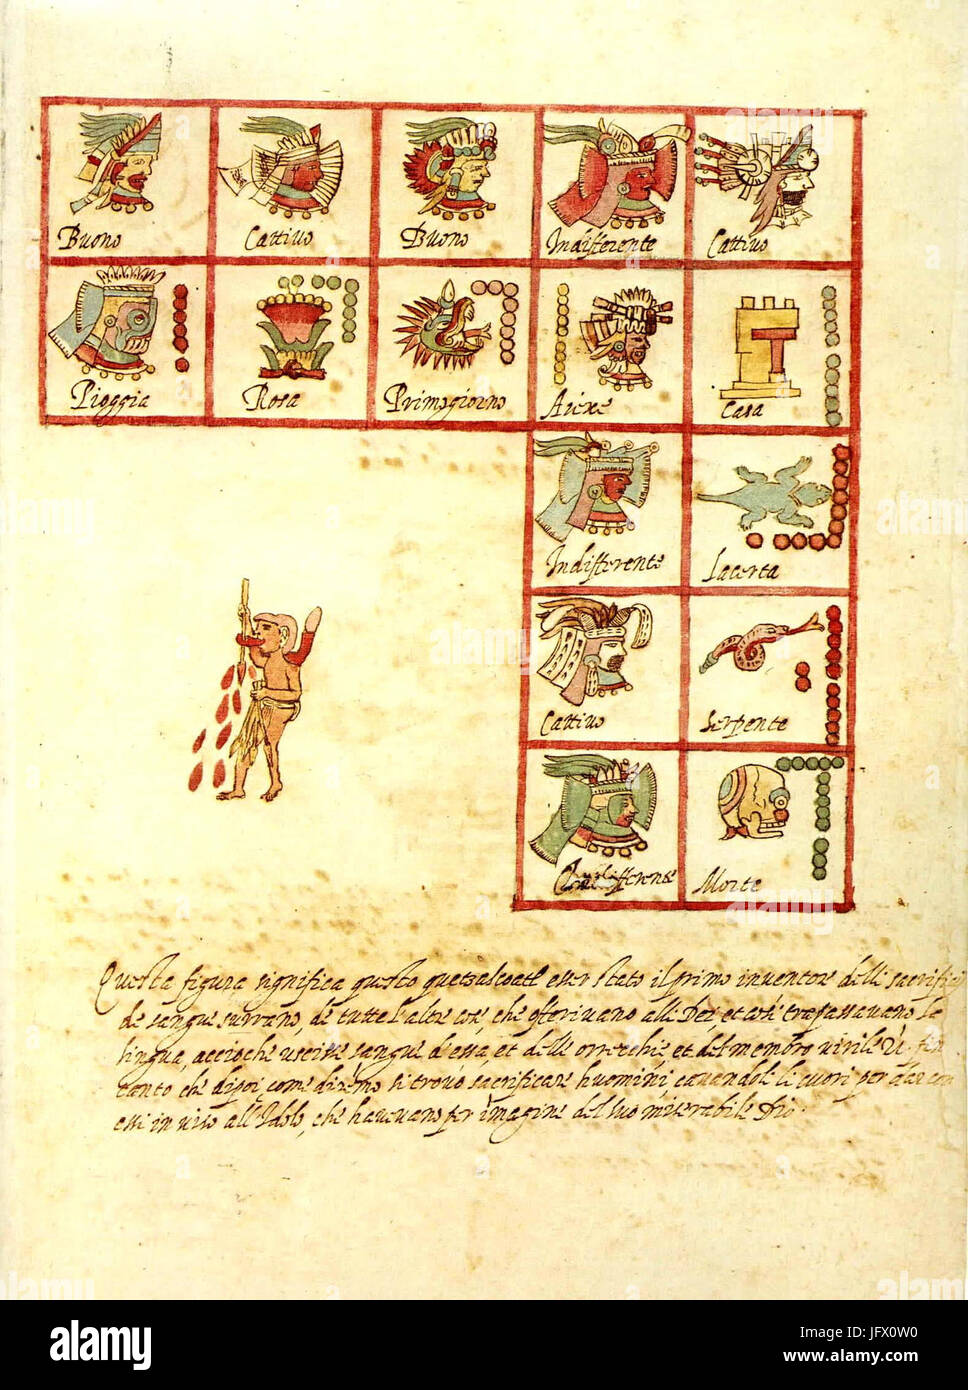 Buono Cattiuo Buono Indifferente Cattiuo
Pioggia Rosa Primogiorno Aiere Casa
Indifferente Lacerta
Cattiuo Serpente
Indifferente Morte
Questa figura significa questo quetzalcoatl esser stato il primo inuentore delli sacrificij
de sangue humano, de tutte l'altre cose, che offeriuano alli Dei, et cosi trapassauano la
lingua, accioche uscisse sangue d'essa, et delle orrecchie, et del membro uirile
tanto che dipoi come diremo si trouò sacrificare huomini, cauandoli li cuori per dar con
essi in uiso all'Idolo, che haueuano per imagine del suo miserabile Dio.
alamy
Image ID: JFX0W0
www.alamy.com